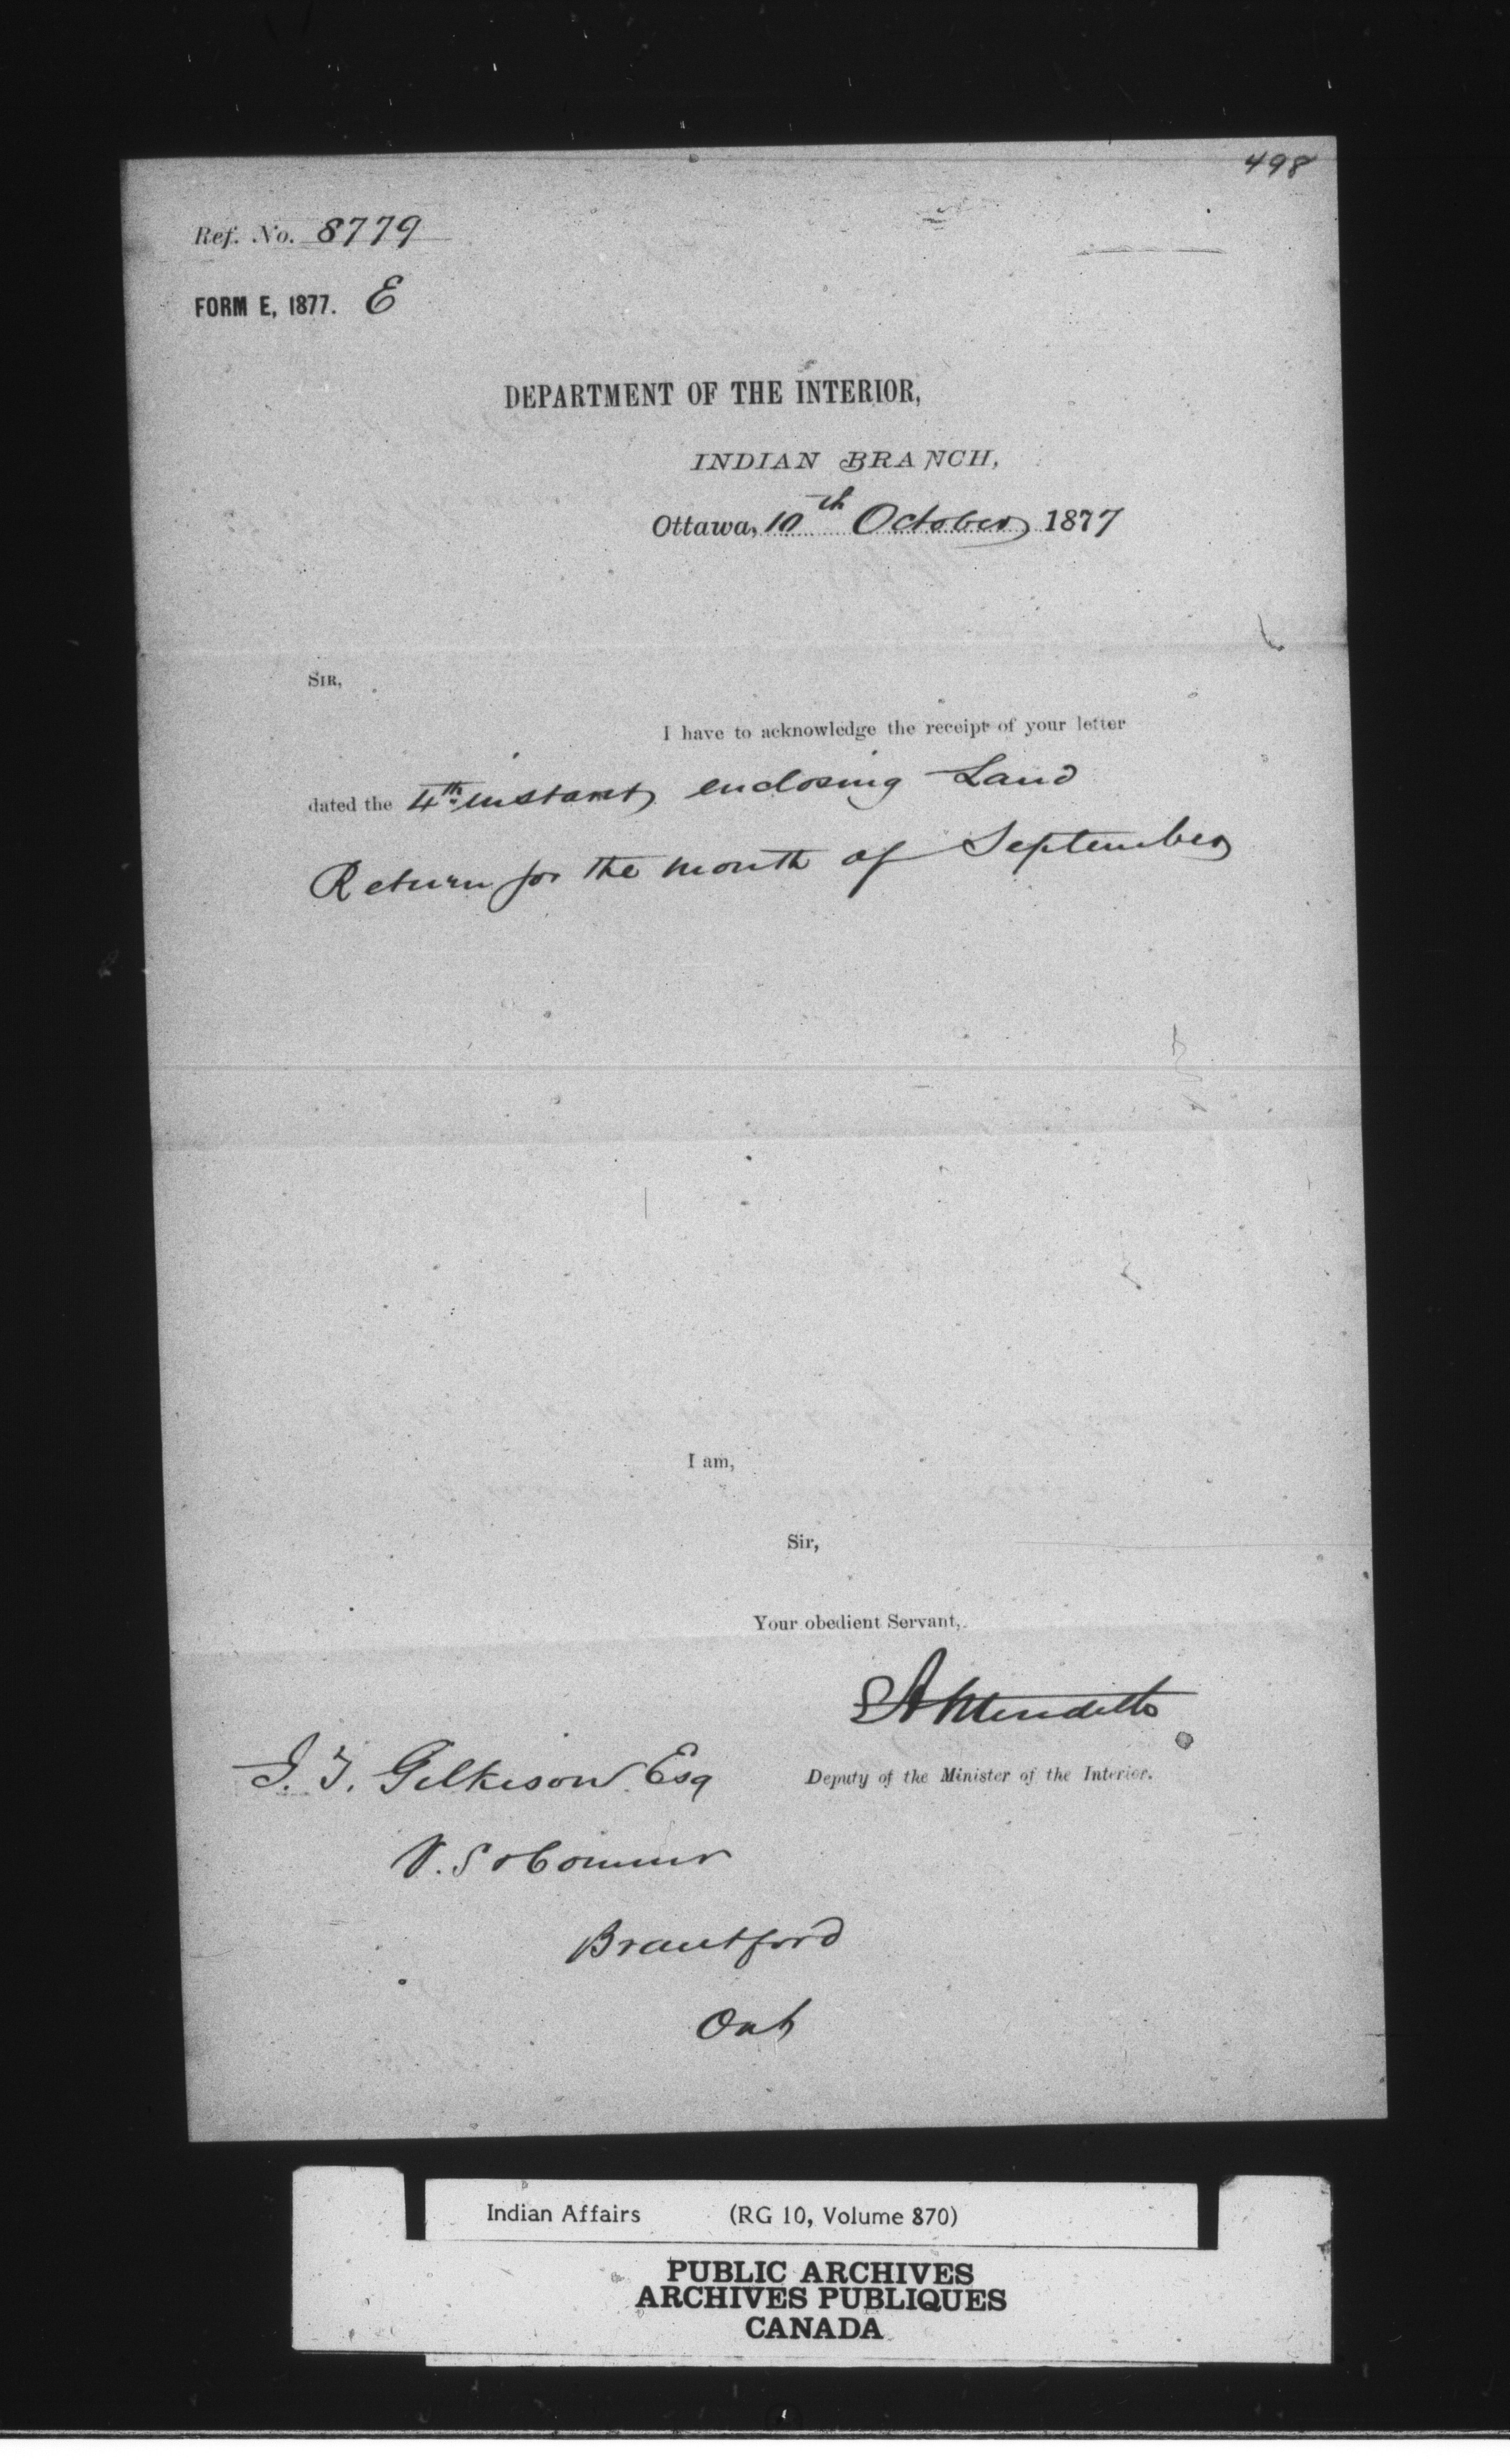 498
Ref. No. 8779
FORM E, 1877. E
DEPARTMENT OF THE INTERIOR,
INDIAN BRANCH,
Ottawa, 10th October 1877
SIR,
I have to acknowledge the receipt of your letter
dated the 4th instant enclosing Land
Return for the month of September
I am,
Sir,
Your obedient Servant,
EAMeredith
Deputy of the Minister of the Interior.
J. T. Gilkison Esq
V. S &
Brantford
Ont
Indian Affairs (RG 10, Volume 870)
PUBLIC ARCHIVES
ARCHIVES PUBLIQUES
CANADA